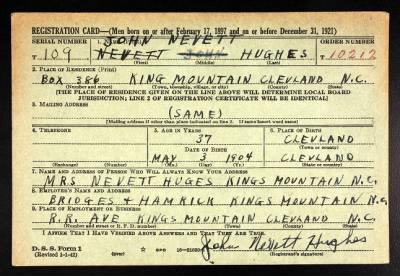 REGISTRATION CARD—(Men born on or after February 17, 1897 and on or before December 31, 1921)
SERIAL NUMBER 1. NAME (Print) ORDER NUMBER
JOHN NEVETT
T 109 NEVETT JOHN HUGHES 10212
(First) (Middle) (Last)
2. PLACE OF RESIDENCE (Print)
BOX 386 KING MOUNTAIN CLEVLAND N.C.
(Number and street) (Town, township, village, or city) (County) (State)
[THE PLACE OF RESIDENCE GIVEN ON THE LINE ABOVE WILL DETERMINE LOCAL BOARD
JURISDICTION; LINE 2 OF REGISTRATION CERTIFICATE WILL BE IDENTICAL]
3. MAILING ADDRESS
(SAME)
[Mailing address if other than place indicated on line 2. If same insert word same]
4. TELEPHONE 5. AGE IN YEARS 6. PLACE OF BIRTH
37 CLEVLAND
DATE OF BIRTH (Town or county)
MAY 3 1904 CLEVLAND
(Exchange) (Number) (Mo.) (Day) (Yr.) (State or country)
7. NAME AND ADDRESS OF PERSON WHO WILL ALWAYS KNOW YOUR ADDRESS
MRS NEVETT HUGES KINGS MOUNTAIN N.C.
8. EMPLOYER'S NAME AND ADDRESS
BRIDGES + HAMRICK KINGS MOUNTAIN N.C.
9. PLACE OF EMPLOYMENT OR BUSINESS
R.R. AVE KINGS MOUNTAIN CLEVLAND N.C.
(Number and street or R. F. D. number) (Town) (County) (State)
I AFFIRM THAT I HAVE VERIFIED ABOVE ANSWERS AND THAT THEY ARE TRUE.
D. S. S. Form 1
(Revised 1-1-42) (over)
John Nevett Hughes